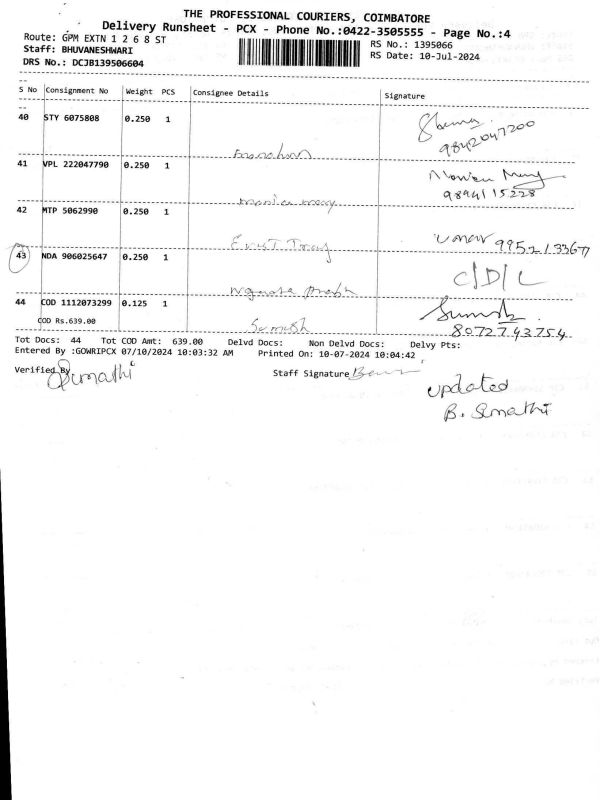 THE PROFESSIONAL COURIERS, COIMBATORE
Delivery Runsheet - PCX - Phone No.:0422-3505555 - Page No.:4
Route: GPM EXTN 1 2 6 8 ST
RS No.: 1395066
Staff: BHUVANESHWARI
RS Date: 10-Jul-2024
DRS No.: DCJB139506604
S No Consignment No Weight PCS Consignee Details Signature
40 STY 6075808 0.250 1
9842047200
41 VPL 222047790 0.250 1
9894115228
monica mary
42 MTP 5062990 0.250 1
43 NDA 906025647 0.250 1 C/D/L
44 COD 1112073299 0.125 1
COD Rs.639.00 Sumish 8072743754
Tot Docs: 44 Tot COD Amt: 639.00 Delvd Docs: Non Delvd Docs: Delvy Pts:
Entered By :GOWRIPCX 07/10/2024 10:03:32 AM Printed On: 10-07-2024 10:04:42
Verified By Sumathi Staff Signature
updated
B. Sumathi